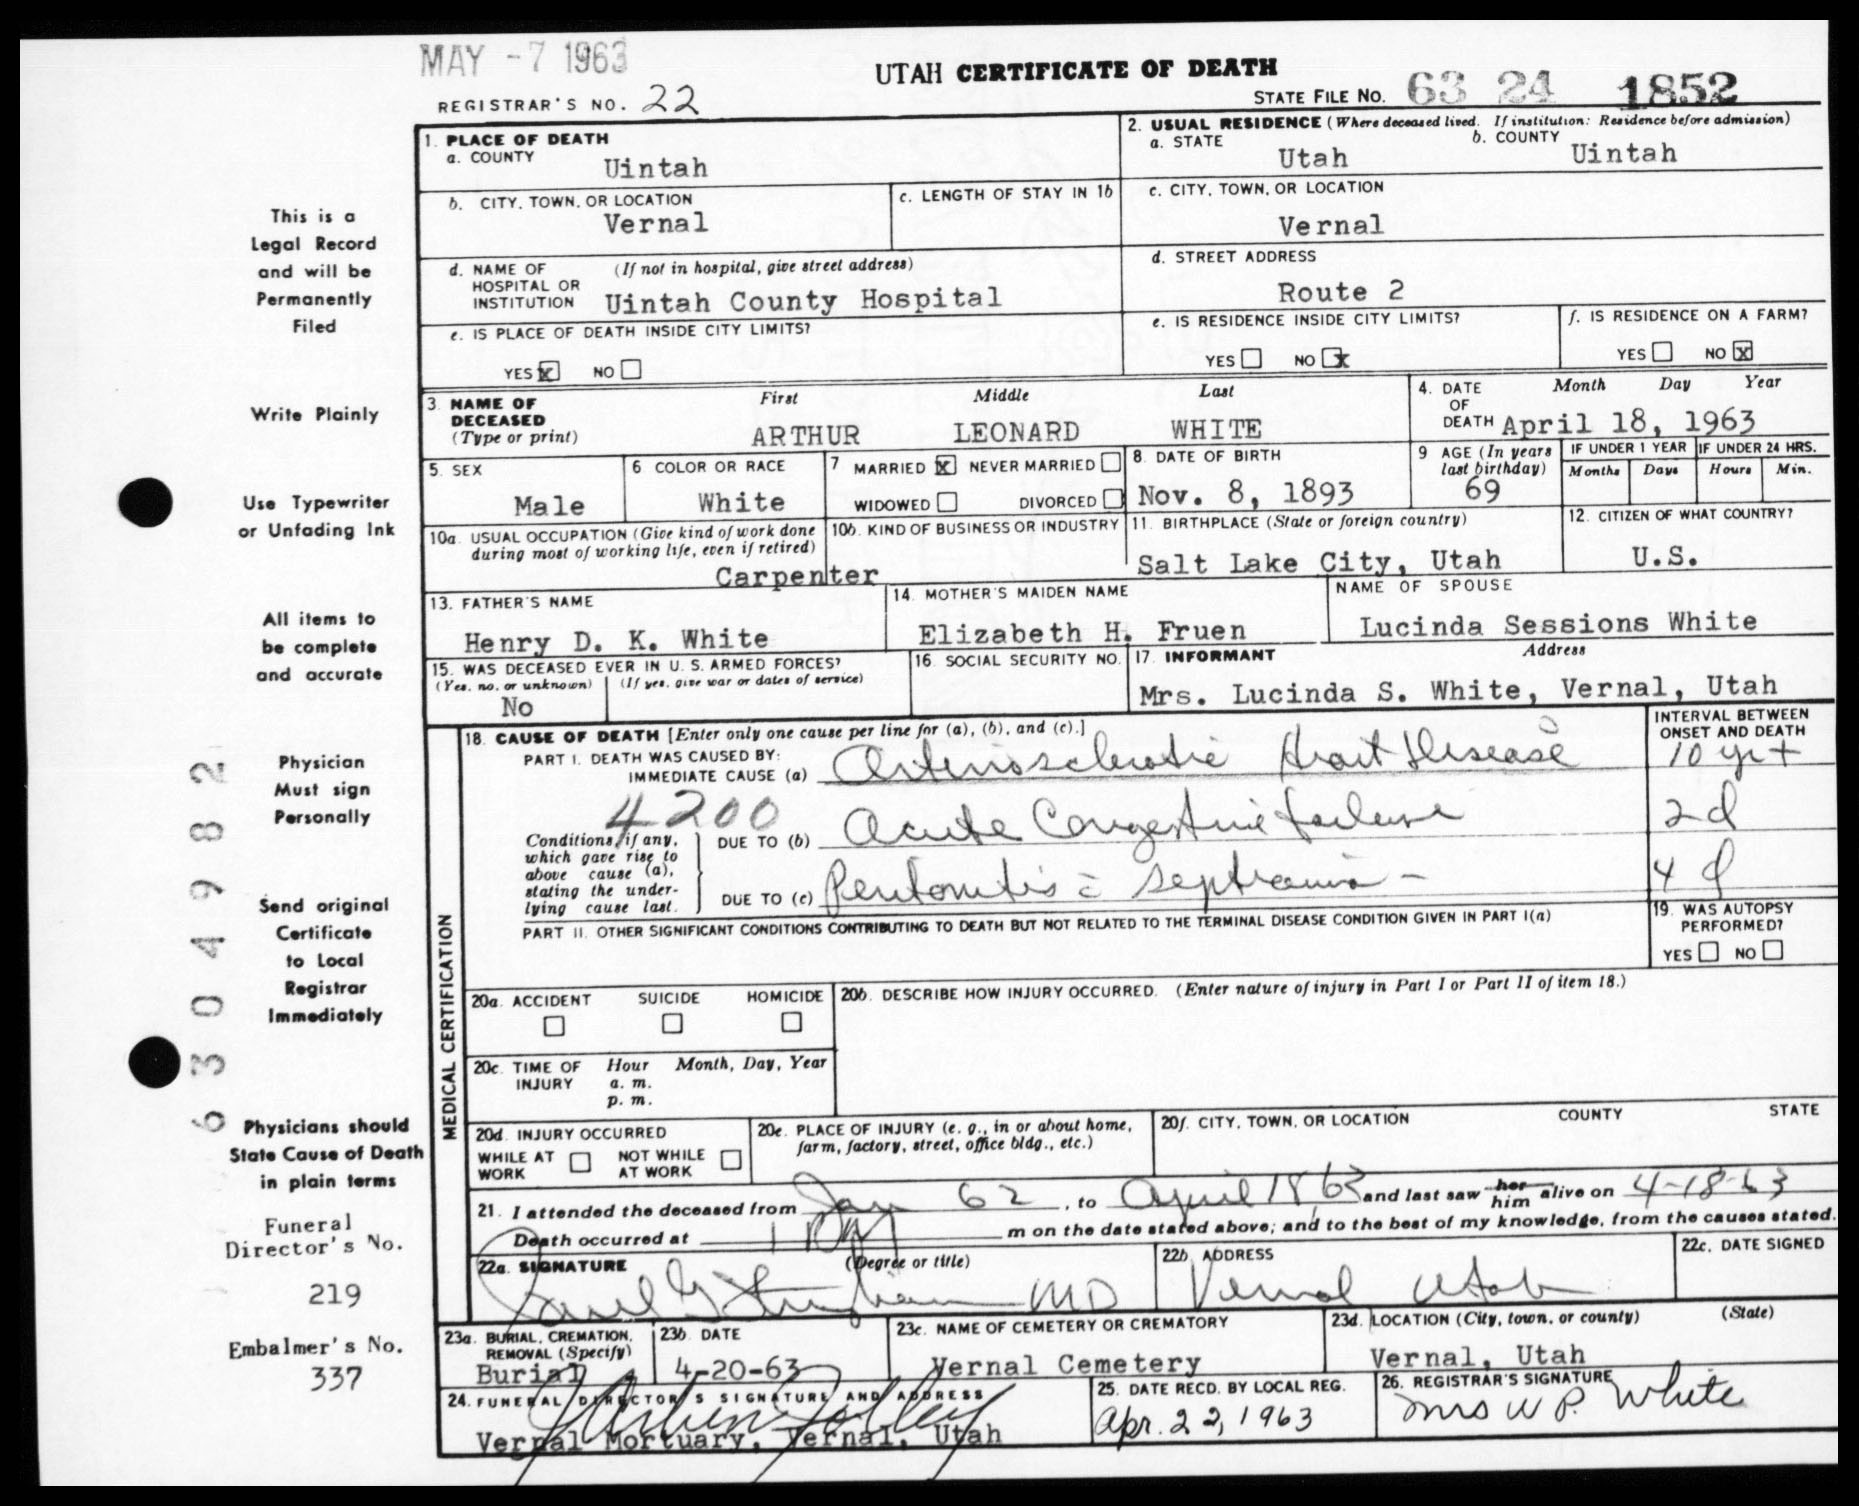 MAY -7 1963
UTAH CERTIFICATE OF DEATH
REGISTRAR'S NO. 22
STATE FILE NO. 63 24 1852
1. PLACE OF DEATH
a. COUNTY
Uintah
2. USUAL RESIDENCE (Where deceased lived. If institution: Residence before admission)
a. STATE Utah b. COUNTY Uintah
b. CITY, TOWN, OR LOCATION
Vernal
c. LENGTH OF STAY IN 1b
c. CITY, TOWN, OR LOCATION
Vernal
d. NAME OF HOSPITAL OR INSTITUTION (If not in hospital, give street address)
Uintah County Hospital
d. STREET ADDRESS
Route 2
e. IS PLACE OF DEATH INSIDE CITY LIMITS?
YES X NO
e. IS RESIDENCE INSIDE CITY LIMITS?
YES NO X
f. IS RESIDENCE ON A FARM?
YES NO X
3. NAME OF DECEASED (Type or print)
First Middle Last
ARTHUR LEONARD WHITE
4. DATE OF DEATH Month Day Year
April 18, 1963
5. SEX
Male
6 COLOR OR RACE
White
7 MARRIED X NEVER MARRIED
WIDOWED DIVORCED
8. DATE OF BIRTH
Nov. 8, 1893
9 AGE (In years last birthday)
69
IF UNDER 1 YEAR
Months Days
IF UNDER 24 HRS.
Hours Min.
10a. USUAL OCCUPATION (Give kind of work done during most of working life, even if retired)
Carpenter
10b. KIND OF BUSINESS OR INDUSTRY
11. BIRTHPLACE (State or foreign country)
Salt Lake City, Utah
12. CITIZEN OF WHAT COUNTRY?
U.S.
13. FATHER'S NAME
Henry D. K. White
14. MOTHER'S MAIDEN NAME
Elizabeth H. Fruen
NAME OF SPOUSE
Lucinda Sessions White
15. WAS DECEASED EVER IN U. S. ARMED FORCES?
(Yes, no, or unknown) (If yes, give war or dates of service)
No
16. SOCIAL SECURITY NO.
17. INFORMANT Address
Mrs. Lucinda S. White, Vernal, Utah
MEDICAL CERTIFICATION
18. CAUSE OF DEATH [Enter only one cause per line for (a), (b), and (c).]
INTERVAL BETWEEN ONSET AND DEATH
PART I. DEATH WAS CAUSED BY:
IMMEDIATE CAUSE (a) Arteriosclerotic Heart Disease 10 yr +
4200
Conditions, if any, which gave rise to above cause (a), stating the underlying cause last.
DUE TO (b) Acute Congestive failure 2 d
DUE TO (c) Peritonitis c̄ septicemia - 4 d
PART II. OTHER SIGNIFICANT CONDITIONS CONTRIBUTING TO DEATH BUT NOT RELATED TO THE TERMINAL DISEASE CONDITION GIVEN IN PART I(a)
19. WAS AUTOPSY PERFORMED?
YES NO
20a. ACCIDENT SUICIDE HOMICIDE
20b. DESCRIBE HOW INJURY OCCURRED. (Enter nature of injury in Part I or Part II of item 18.)
20c. TIME OF INJURY Hour Month, Day, Year
a. m.
p. m.
20d. INJURY OCCURRED
WHILE AT WORK NOT WHILE AT WORK
20e. PLACE OF INJURY (e. g., in or about home, farm, factory, street, office bldg., etc.)
20f. CITY, TOWN, OR LOCATION COUNTY STATE
21. I attended the deceased from Jan 62, to April 18, 63 and last saw her him alive on 4-18-63
Death occurred at 1 PM m on the date stated above; and to the best of my knowledge, from the causes stated.
22a. SIGNATURE (Degree or title)
Paul G Stringham MD
22b. ADDRESS
Vernal Utah
22c. DATE SIGNED
23a. BURIAL, CREMATION, REMOVAL (Specify)
Burial
23b DATE
4-20-63
23c. NAME OF CEMETERY OR CREMATORY
Vernal Cemetery
23d. LOCATION (City, town, or county) (State)
Vernal, Utah
24. FUNERAL DIRECTOR'S SIGNATURE AND ADDRESS
Vernal Mortuary, Vernal, Utah
25. DATE RECD. BY LOCAL REG.
Apr. 22, 1963
26. REGISTRAR'S SIGNATURE
Mrs W P. White
This is a
Legal Record
and will be
Permanently
Filed
Write Plainly
Use Typewriter
or Unfading Ink
All items to
be complete
and accurate
Physician
Must sign
Personally
Send original
Certificate
to Local
Registrar
Immediately
Physicians should
State Cause of Death
in plain terms
Funeral
Director's No.
219
Embalmer's No.
337
6304982